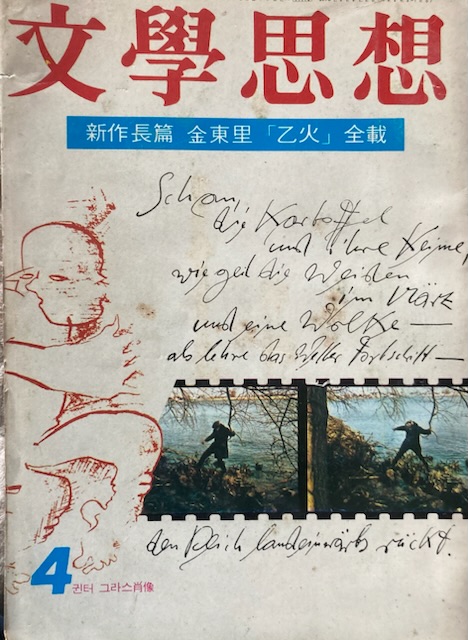 文學思想
新作長篇 金東里「乙火」全載
Schau,
die Kartoffel
und ihre Keime,
wie geil die Weiden
im März
und eine Wolke —
als lehre das Wetter Fortschritt —
den Deich landeinwärts rückt.
4
귄터 그라스肖像